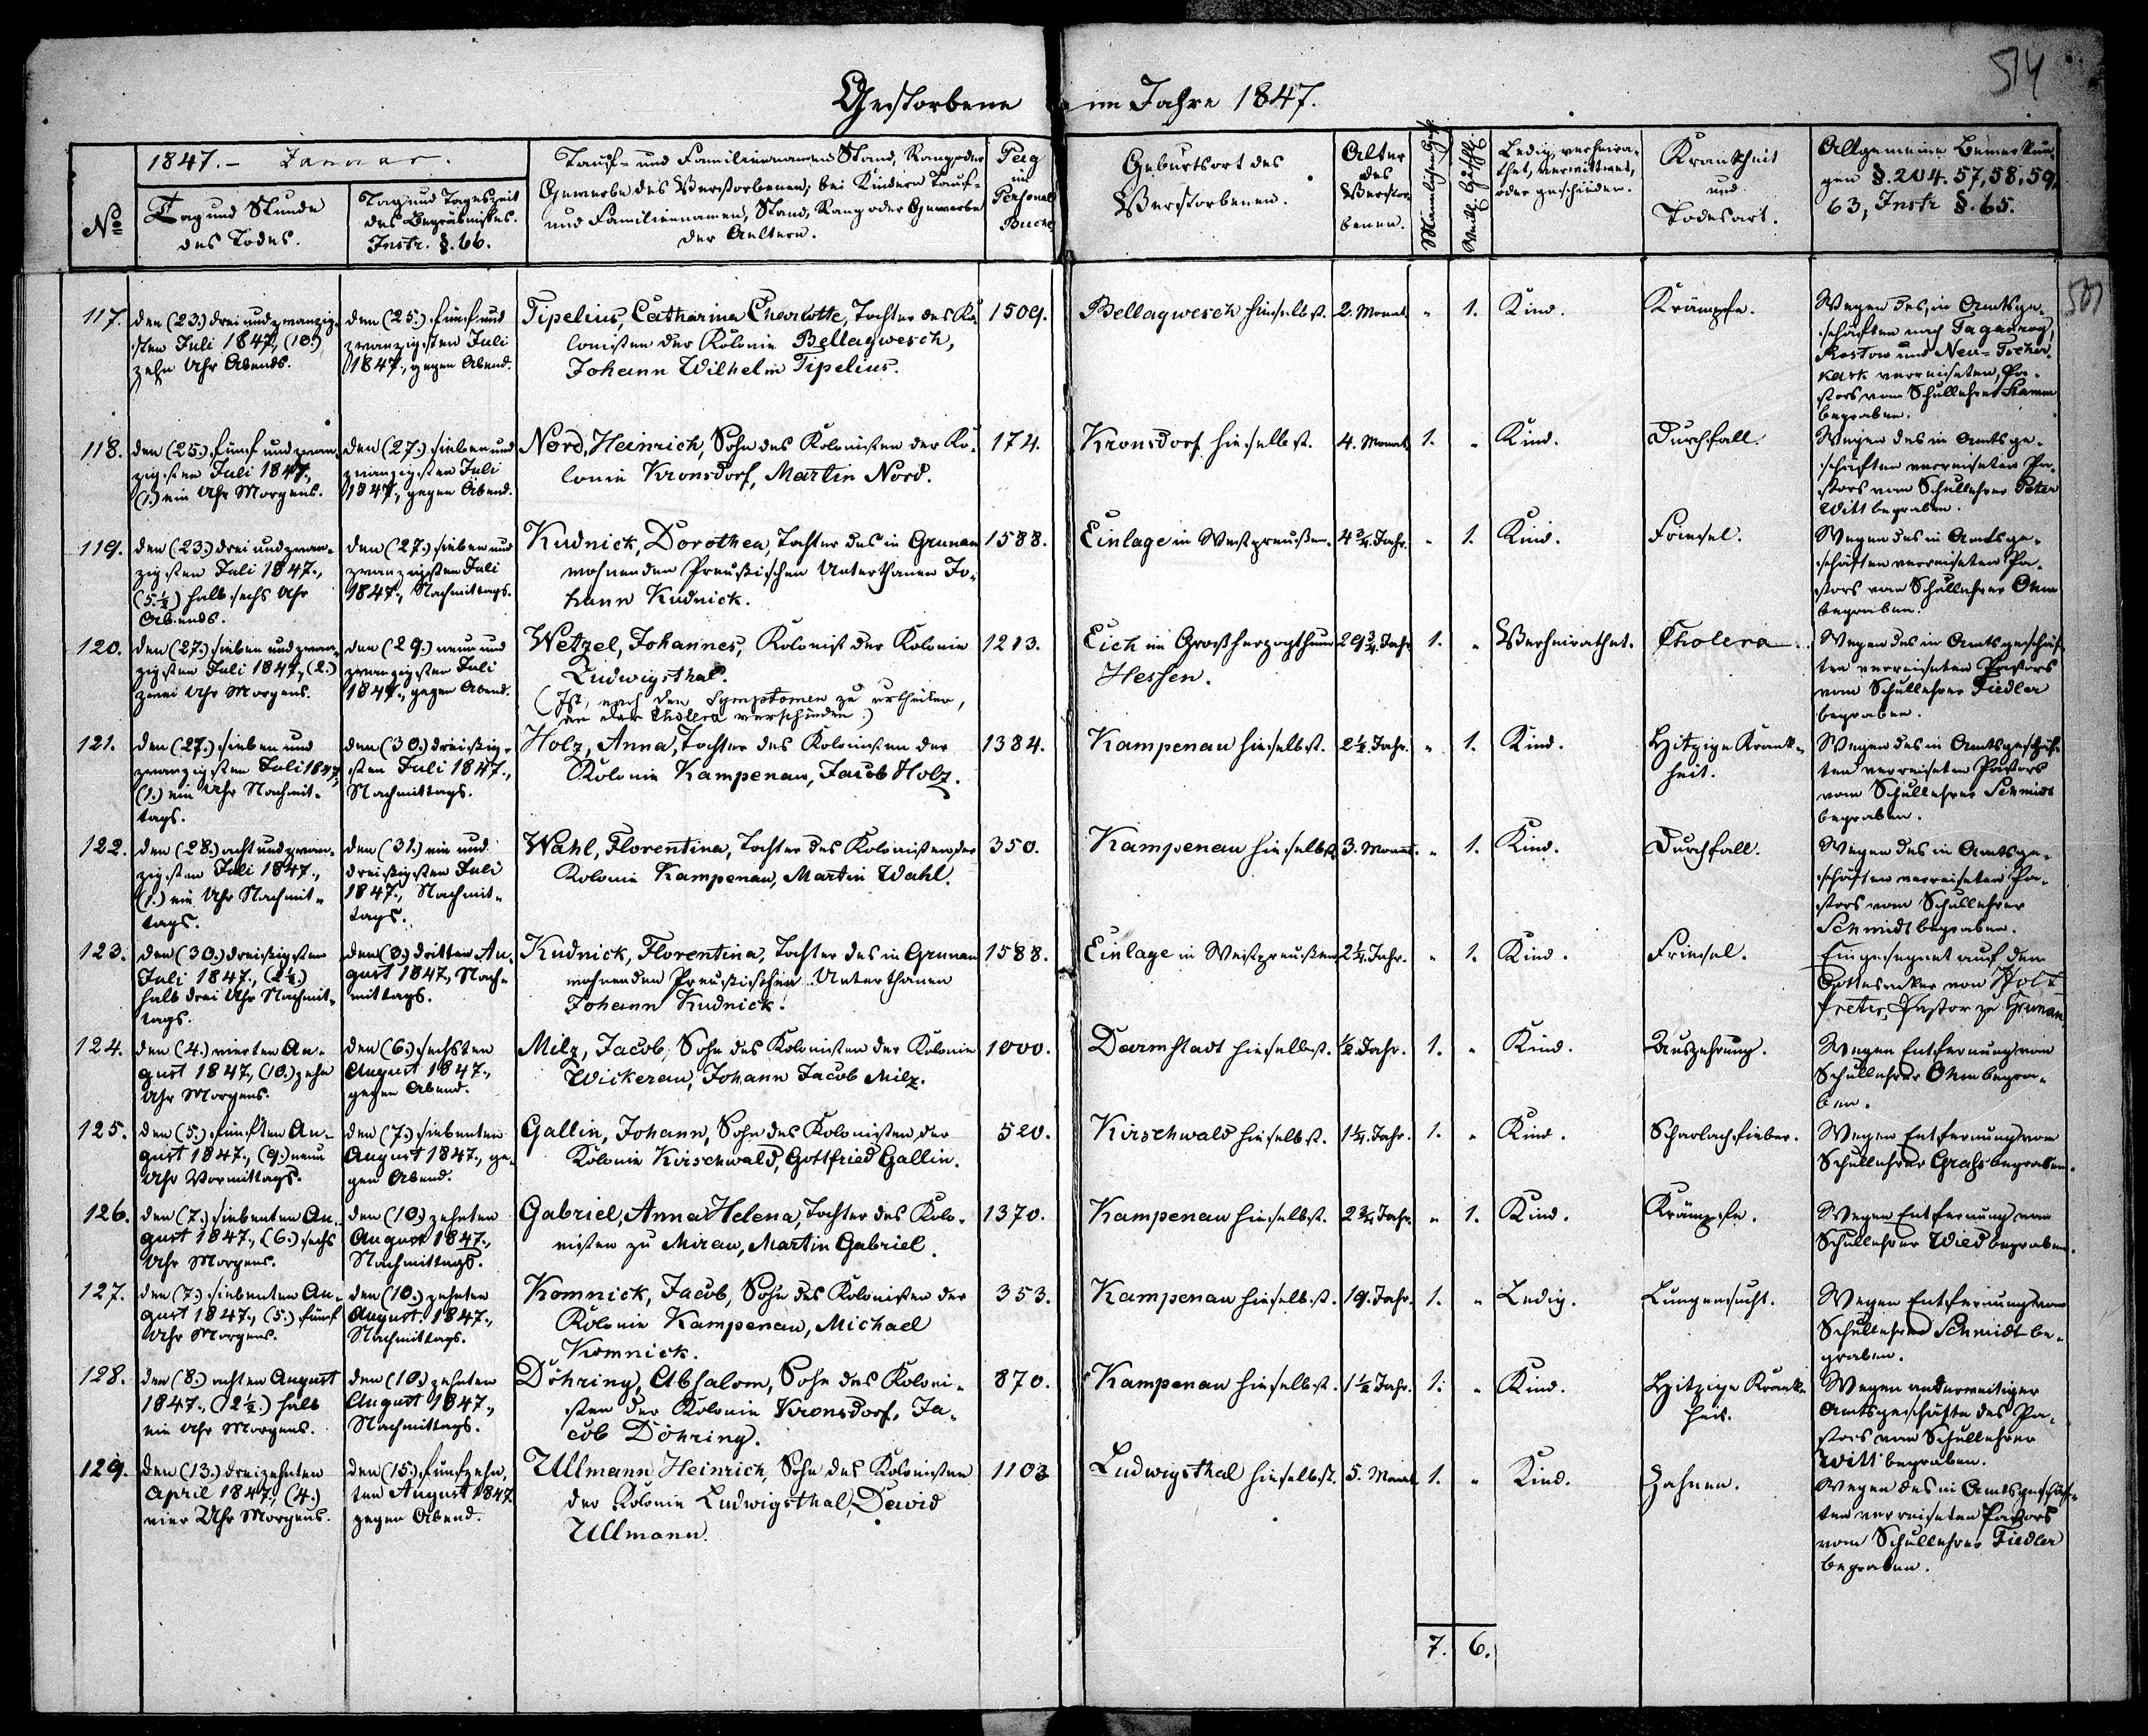 514
Gestorbene im Jahre 1847.
No
1847. - Januar.
Tag und Stunde
des Todes.
Tag und Tageszeit
des Begräbnißes.
Instr. §. 66.
Tauf- und Familiennamen, Stand, Rang oder
Gewerbe des Verstorbenen; bei Kindern Tauf-
und Familiennamen, Stand, Rang oder Gewerbe
der Aeltern.
Pag
im
Personal
Buche
Geburtsort des
Verstorbenen.
Alter
des
Verstor-
benen.
Männlichen Geschl.
Weibl. Geschl.
Ledig, verheira-
thet, verwittwet,
oder geschieden.
Krankheit
und
Todesart.
Allgemeine Bemerkun-
gen §. 204. 57, 58, 59,
63, Instr §. 65.
117.
den (23.) drei und zwanzig-
sten Juli 1847., (10.)
zehn Uhr Abends.
den (25.) fünf und
zwanzigsten Juli
1847., gegen Abend.
Tipelius, Catharina Charlotte, Tochter des Ko-
lonisten der Kolonie Bellagwesch,
Johann Wilhelm Tipelius.
1509.
Bellagwesch hieselbst.
2. Monat.
" 1.
Kind.
Krämpfe.
Wegen des, in Amtsge-
schäften nach Taganrog,
Rostow und Neu-Tscher-
kask verreiseten, Pa-
stors vom Schullehrer Stamm
begraben.
118.
den (25.) fünf und zwan-
zigsten Juli 1847.,
(1.) ein Uhr Morgens.
den (27.) sieben und
zwanzigsten Juli
1847., gegen Abend.
Nord, Heinrich, Sohn des Kolonisten der Ko-
lonie Kronsdorf, Martin Nord.
174.
Kronsdorf hieselbst.
4. Monat.
1. "
Kind.
Durchfall.
Wegen des in Amtsge-
schäften verreiseten Pa-
stors vom Schullehrer Peter
Witt begraben.
119.
den (23.) drei und zwan-
zigsten Juli 1847.,
(5.½) halb sechs Uhr
Abends.
den (27.) sieben und
zwanzigsten Juli
1847., Nachmittags.
Kudnick, Dorothea, Tochter des in Grunau
wohnenden Preußischen Unterthanen Jo-
hann Kudnick.
1588.
Einlage in Westpreußen.
4¾. Jahr.
" 1.
Kind.
Friesel.
Wegen des in Amtsge-
schäften verreiseten Pa-
stors vom Schullehrer Ohm
begraben.
120.
den (27.) sieben und zwan-
zigsten Juli 1847., (2.)
zwei Uhr Morgens.
den (29.) neun und
zwanzigsten Juli
1847., gegen Abend.
Wetzel, Johannes, Kolonist der Kolonie
Ludwigsthal.
(Ist, nach den Symptomen zu urtheilen,
an der Cholera verschieden.)
1213.
Eich im Großherzogthum
Hessen.
29¾. Jahr.
1. "
Verheirathet.
Cholera.
Wegen des in Amtsgeschäf-
ten verreiseten Pastors
vom Schullehrer Fiedler
begraben.
121.
den (27.) sieben und
zwanzigsten Juli 1847.,
(1.) ein Uhr Nachmit-
tags.
den (30.) dreißig-
sten Juli 1847.,
Nachmittags.
Holz, Anna, Tochter des Kolonisten der
Kolonie Kampenau, Jacob Holz.
1384.
Kampenau hieselbst.
2½. Jahr.
" 1.
Kind.
Hitzige Krank-
heit.
Wegen des in Amtsgeschäf-
ten verreiseten Pastors
vom Schullehrer Schmidt
begraben.
122.
den (28.) acht und zwan-
zigsten Juli 1847.,
(1.) ein Uhr Nachmit-
tags.
den (31.) ein und
dreißigsten Juli
1847., Nachmit-
tags.
Wahl, Florentina, Tochter des Kolonisten der
Kolonie Kampenau, Martin Wahl.
350.
Kampenau hieselbst.
3. Monat.
" 1.
Kind.
Durchfall.
Wegen des in Amtsge-
schäften verreiseten Pa-
stors vom Schullehrer
Schmidt begraben.
123.
den (30.) dreißigsten
Juli 1847., (2½.)
halb drei Uhr Nachmit-
tags.
den (3.) dritten Au-
gust 1847, Nach-
mittags.
Kudnick, Florentina, Tochter des in Grunau
wohnenden Preußischen Unterthanen
Johann Kudnick.
1588.
Einlage in Westpreußen
2¼. Jahr.
" 1.
Kind.
Friesel.
Eingesegnet auf dem
Gottesacker von Holt-
freter, Pastor zu Grunau.
124.
den (4.) vierten Au-
gust 1847., (10.) zehn
Uhr Morgens.
den (6.) sechsten
August 1847.,
gegen Abend.
Milz, Jacob, Sohn des Kolonisten der Kolonie
Wickerau, Johann Jacob Milz.
1000.
Darmstadt hieselbst.
½. Jahr.
1. "
Kind.
Auszehrung.
Wegen Entfernung vom
Schullehrer Ohm begra-
ben.
125.
den (5.) fünften Au-
gust 1847., (9.) neun
Uhr Vormittags.
den (7.) siebenten
August 1847., ge-
gen Abend.
Gallin, Johann, Sohn des Kolonisten der
Kolonie Kirschwald, Gottfried Gallin.
520.
Kirschwald hieselbst.
1¼. Jahr.
1. "
Kind.
Scharlachfieber.
Wegen Entfernung vom
Schullehrer Grahs begraben.
126.
den (7.) siebenten Au-
gust 1847., (6.) sechs
Uhr Morgens.
den (10.) zehnten
August 1847.,
Nachmittags.
Gabriel, Anna Helena, Tochter des Kolo-
nisten zu Mirau, Martin Gabriel.
1370.
Kampenau hieselbst.
2¾. Jahr.
" 1.
Kind.
Krämpfe.
Wegen Entfernung vom
Schullehrer Wied begraben.
127.
den (7.) siebenten Au-
gust 1847., (5.) fünf
Uhr Morgens.
den (10.) zehnten
August 1847.,
Nachmittags.
Komnick, Jacob, Sohn des Kolonisten der
Kolonie Kampenau, Michael
Komnick.
353.
Kampenau hieselbst.
19. Jahr.
1. "
Ledig.
Lungensucht.
Wegen Entfernung vom
Schullehrer Schmidt be-
graben.
128.
den (8.) achten August
1847., (12½.) halb
ein Uhr Morgens.
den (10.) zehnten
August 1847.,
Nachmittags.
Döhring, Absalom, Sohn des Koloni-
sten der Kolonie Kronsdorf, Ja-
cob Döhring.
870.
Kampenau hieselbst.
1½ Jahr.
1. "
Kind.
Hitzige Krank-
heit.
Wegen anderweitiger
Amtsgeschäfte des Pa-
stors vom Schullehrer
Witt begraben.
129.
den (13.) dreizehnten
April 1847., (4.)
vier Uhr Morgens.
den (15.) fünfzehn-
ten August 1847.
gegen Abend.
Ullmann, Heinrich, Sohn des Kolonisten
der Kolonie Ludwigsthal, David
Ullmann.
1103
Ludwigsthal hieselbst.
5. Monat
1. "
Kind.
Zahnen.
Wegen des in Amtsgeschäf-
ten verreiseten Pastors
vom Schullehrer Fiedler
begraben.
7. 6.